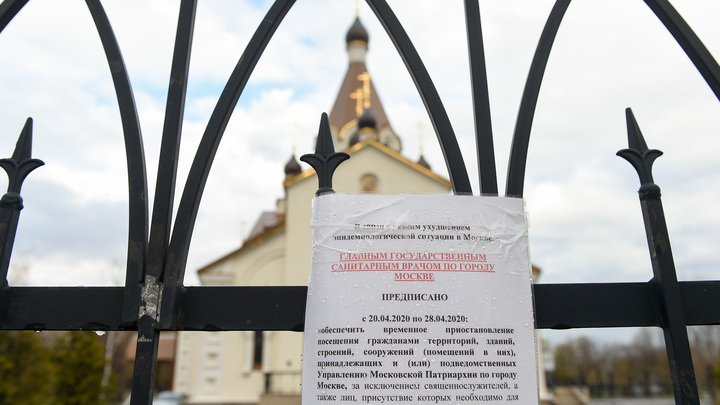 ухудшением
эпидемиологической ситуации в Москве
ГЛАВНЫМ ГОСУДАРСТВЕННЫМ
САНИТАРНЫМ ВРАЧОМ ПО ГОРОДУ
МОСКВЕ
ПРЕДПИСАНО
с 20.04.2020 по 28.04.2020:
обеспечить временное приостановление
посещения гражданами территорий, зданий,
строений, сооружений (помещений в них),
принадлежащих и (или) подведомственных
Управлению Московской Патриархии по городу
Москве, за исключением священнослужителей, а
также лиц, присутствие которых необходимо для